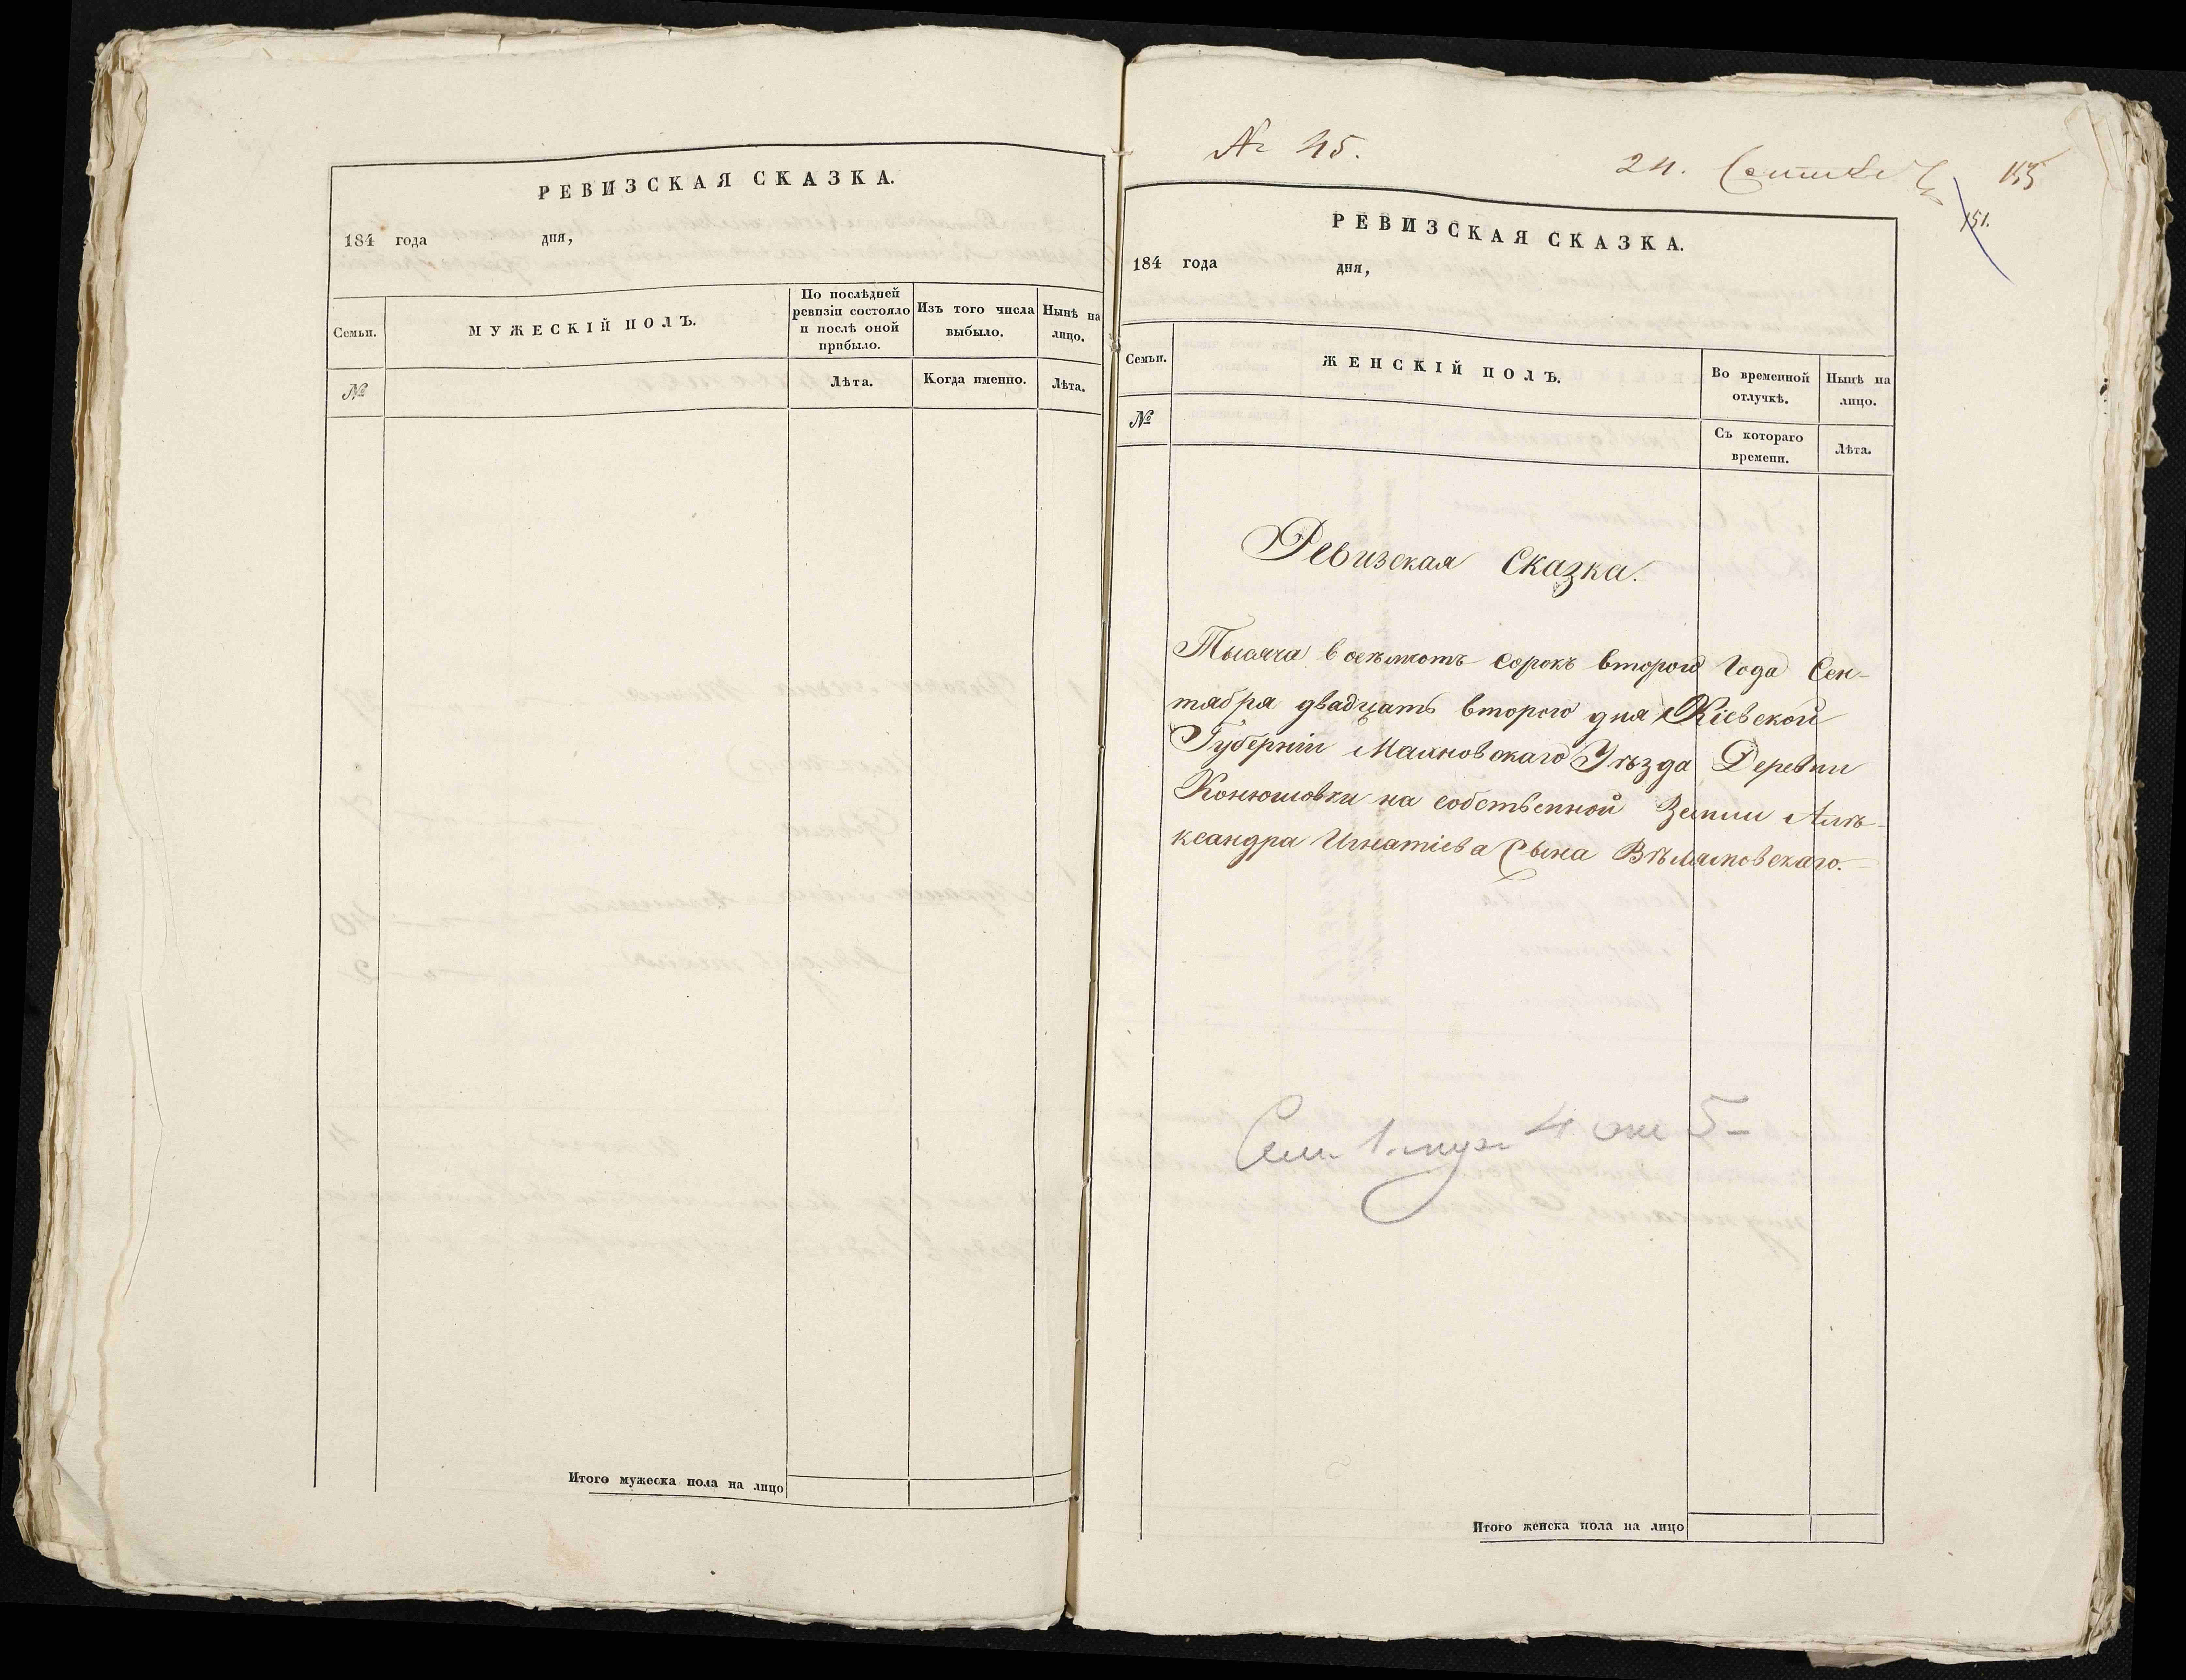 РЕВИЗСКАЯ СКАЗКА.
184 года дня,
Семьи.
МУЖЕСКІЙ ПОЛЪ.
По послѣдней ревизіи состояло и послѣ оной прибыло.
Изъ того числа выбыло.
Нынѣ на лицо.
№
Лѣта.
Когда именно.
Лѣта.
Итого мужеска пола на лицо
№ 45.
24.
155
151.
РЕВИЗСКАЯ СКАЗКА.
184 года дня,
Семьи.
ЖЕНСКІЙ ПОЛЪ.
Во временной отлучкѣ.
Нынѣ на лицо.
№
Съ котораго времени.
Лѣта.
Ревизская Сказка.
Тысяча восѣмсотъ сорокъ второго Года Сен-
тября двадцать второго дня Кіевской
Губерніи Махновскаго Уѣзда Деревни
Конюшовки на собственной Земли Алѣ-
ксандра Игнатіева Сына Вѣлямовскаго.
Сем. 1. муж 4 жен 5 -
Итого женска пола на лицо